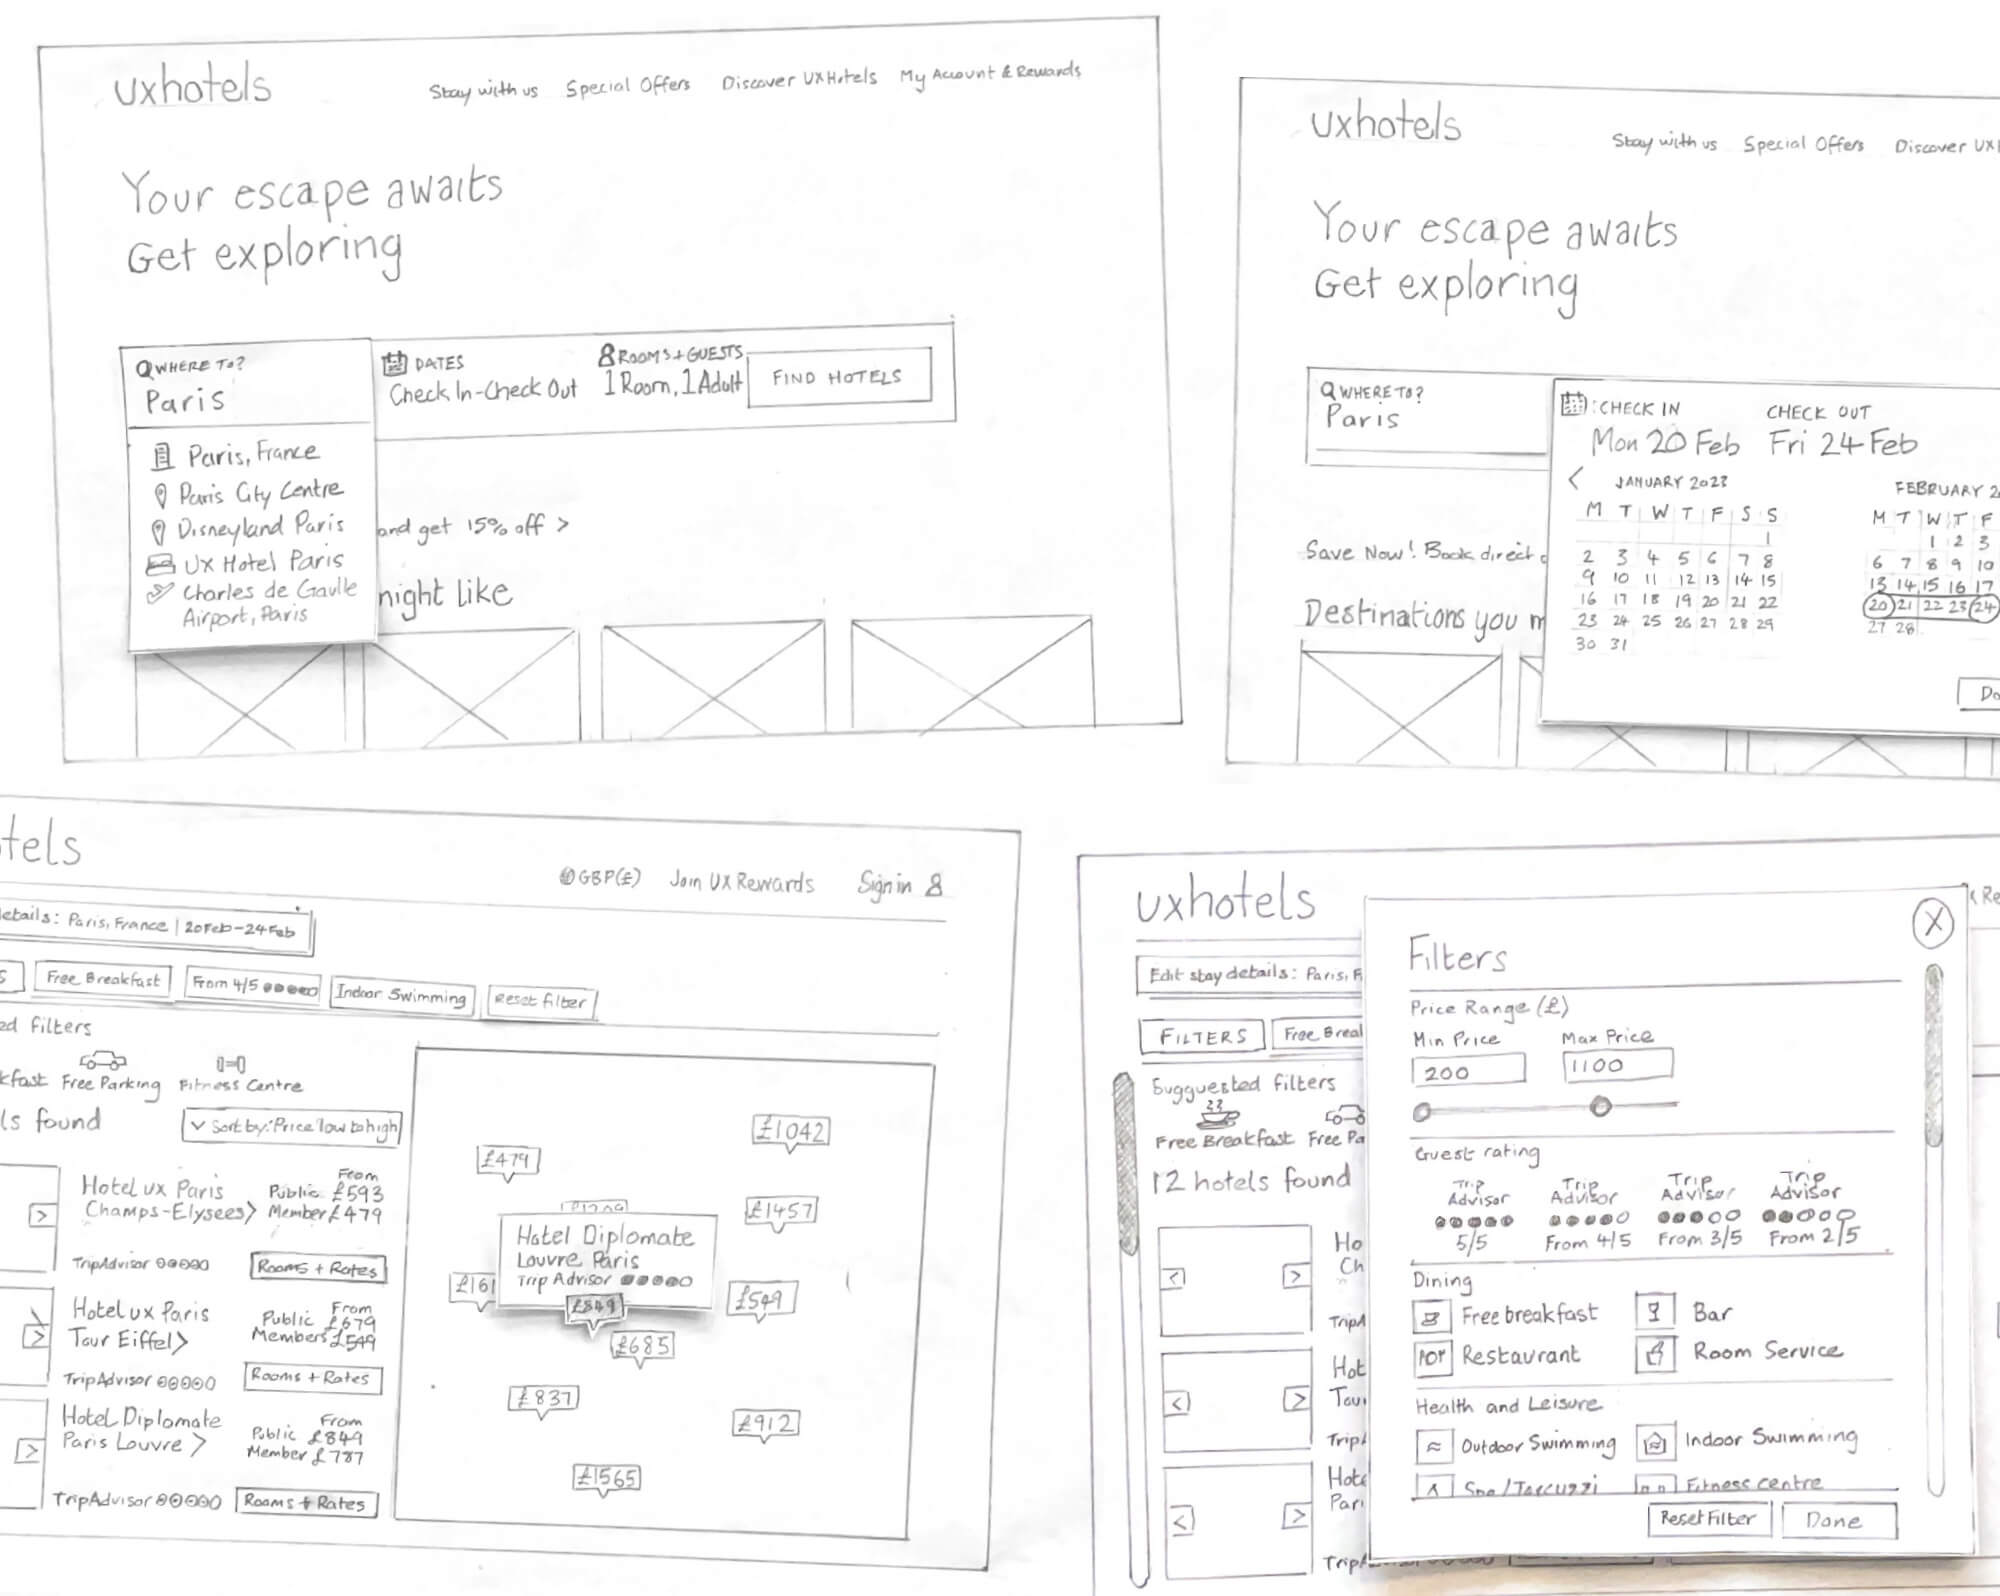 uxhotels
Stay with us Special Offers Discover UXHotels My Account & Rewards
Your escape awaits
Get exploring
WHERE TO?
Paris
DATES
Check In-Check Out
ROOMS+GUESTS
1 Room, 1 Adult
FIND HOTELS
Paris, France
Paris City Centre
Disneyland Paris
UX Hotel Paris
Charles de Gaulle
Airport, Paris
and get 15% off >
night like
uxhotels
Stay with us Special Offers Discover UX
Your escape awaits
Get exploring
WHERE TO?
Paris
CHECK IN CHECK OUT
Mon 20 Feb Fri 24 Feb
< JANUARY 2023
M T W T F S S
1
2 3 4 5 6 7 8
9 10 11 12 13 14 15
16 17 18 19 20 21 22
23 24 25 26 27 28 29
30 31
FEBRUARY 2
M T W T F
1 2 3
6 7 8 9 10
13 14 15 16 17
20 21 22 23 24
27 28
Do
Save Now! Book direct
Destinations you m
tels
GBP(£) Join UX Rewards Sign in
etails: Paris, France | 20Feb-24Feb
S Free Breakfast From 4/5 Indoor Swimming Reset filter
ed filters
kfast Free Parking Fitness Centre
ls found
Sort by: Price low to high
Hotel ux Paris
Champs-Elysees >
From
Public £593
Member £479
TripAdvisor
Rooms + Rates
Hotel ux Paris
Tour Eiffel >
From
Public £679
Members £549
TripAdvisor
Rooms + Rates
Hotel Diplomate
Paris Louvre >
From
Public £849
Member £787
TripAdvisor
Rooms + Rates
£1042
£479
£1457
Hotel Diplomate
Louvre Paris
Trip Advisor
£161
£849
£549
£685
£837
£912
£1565
uxhotels
Re
Edit stay details: Paris, F
FILTERS Free Break
Sugguested filters
Free Breakfast Free Pa
12 hotels found
Ho
Ch
TripA
Hot
Tou
TripA
Hote
Pari
TripA
X
Filters
Price Range (£)
Min Price Max Price
200 1100
Guest rating
Trip Advisor 5/5
Trip Advisor From 4/5
Trip Advisor From 3/5
Trip Advisor From 2/5
Dining
Free breakfast Bar
Restaurant Room Service
Health and Leisure
Outdoor Swimming Indoor Swimming
Spa/Jaccuzzi Fitness centre
Reset Filter Done